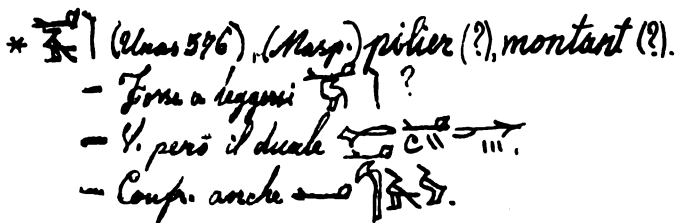 * (Unas 576), (Masp.) pilier (?), montant (?).
- Forse a leggersi ?
- V. però il duale .
- Confr. anche .